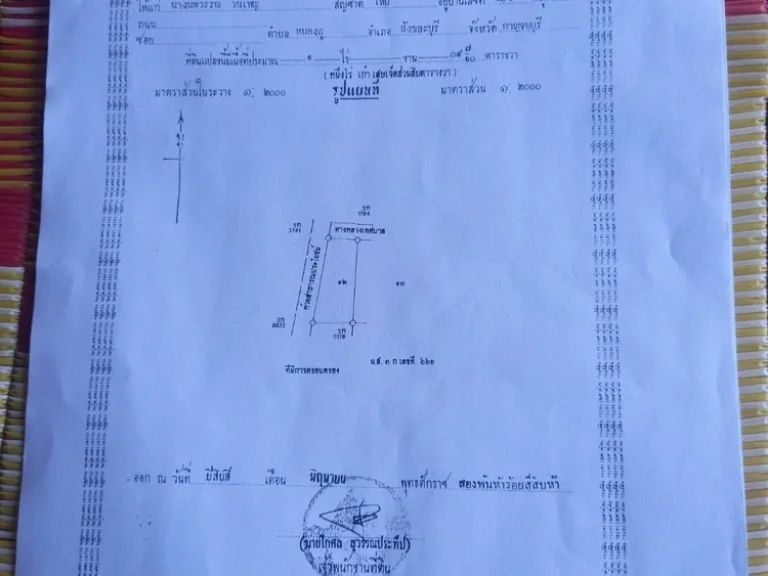 ให้แก่ นางนพวรรณ วันเพ็ญ สัญชาติ ไทย อยู่บ้านเลขที่
ถนน
ซอย ตำบล หนองลู อำเภอ สังขละบุรี จังหวัด กาญจนบุรี
ที่ดินแปลงนี้มีเนื้อที่ประมาณ ๑ ไร่ งาน ๐๙ ๗/๑๐ ตารางวา
( หนึ่งไร่ เก้า เศษเจ็ดส่วนสิบตารางวา )
มาตราส่วนในระวาง ๑: ๒๐๐๐ รูปแผนที่ มาตราส่วน ๑: ๒๐๐๐
ทางหลวงเทศบาล
ห้วยสาธารณประโยชน์
๑๒ ๑๓
ที่มีการครอบครอง น.ส. ๓ ก เลขที่ ๖๖๒
ออก ณ วันที่ ยี่สิบสี่ เดือน มิถุนายน พุทธศักราช สองพันห้าร้อยสี่สิบห้า
(นายโกศล สุวรรณประทีป)
เจ้าพนักงานที่ดิน